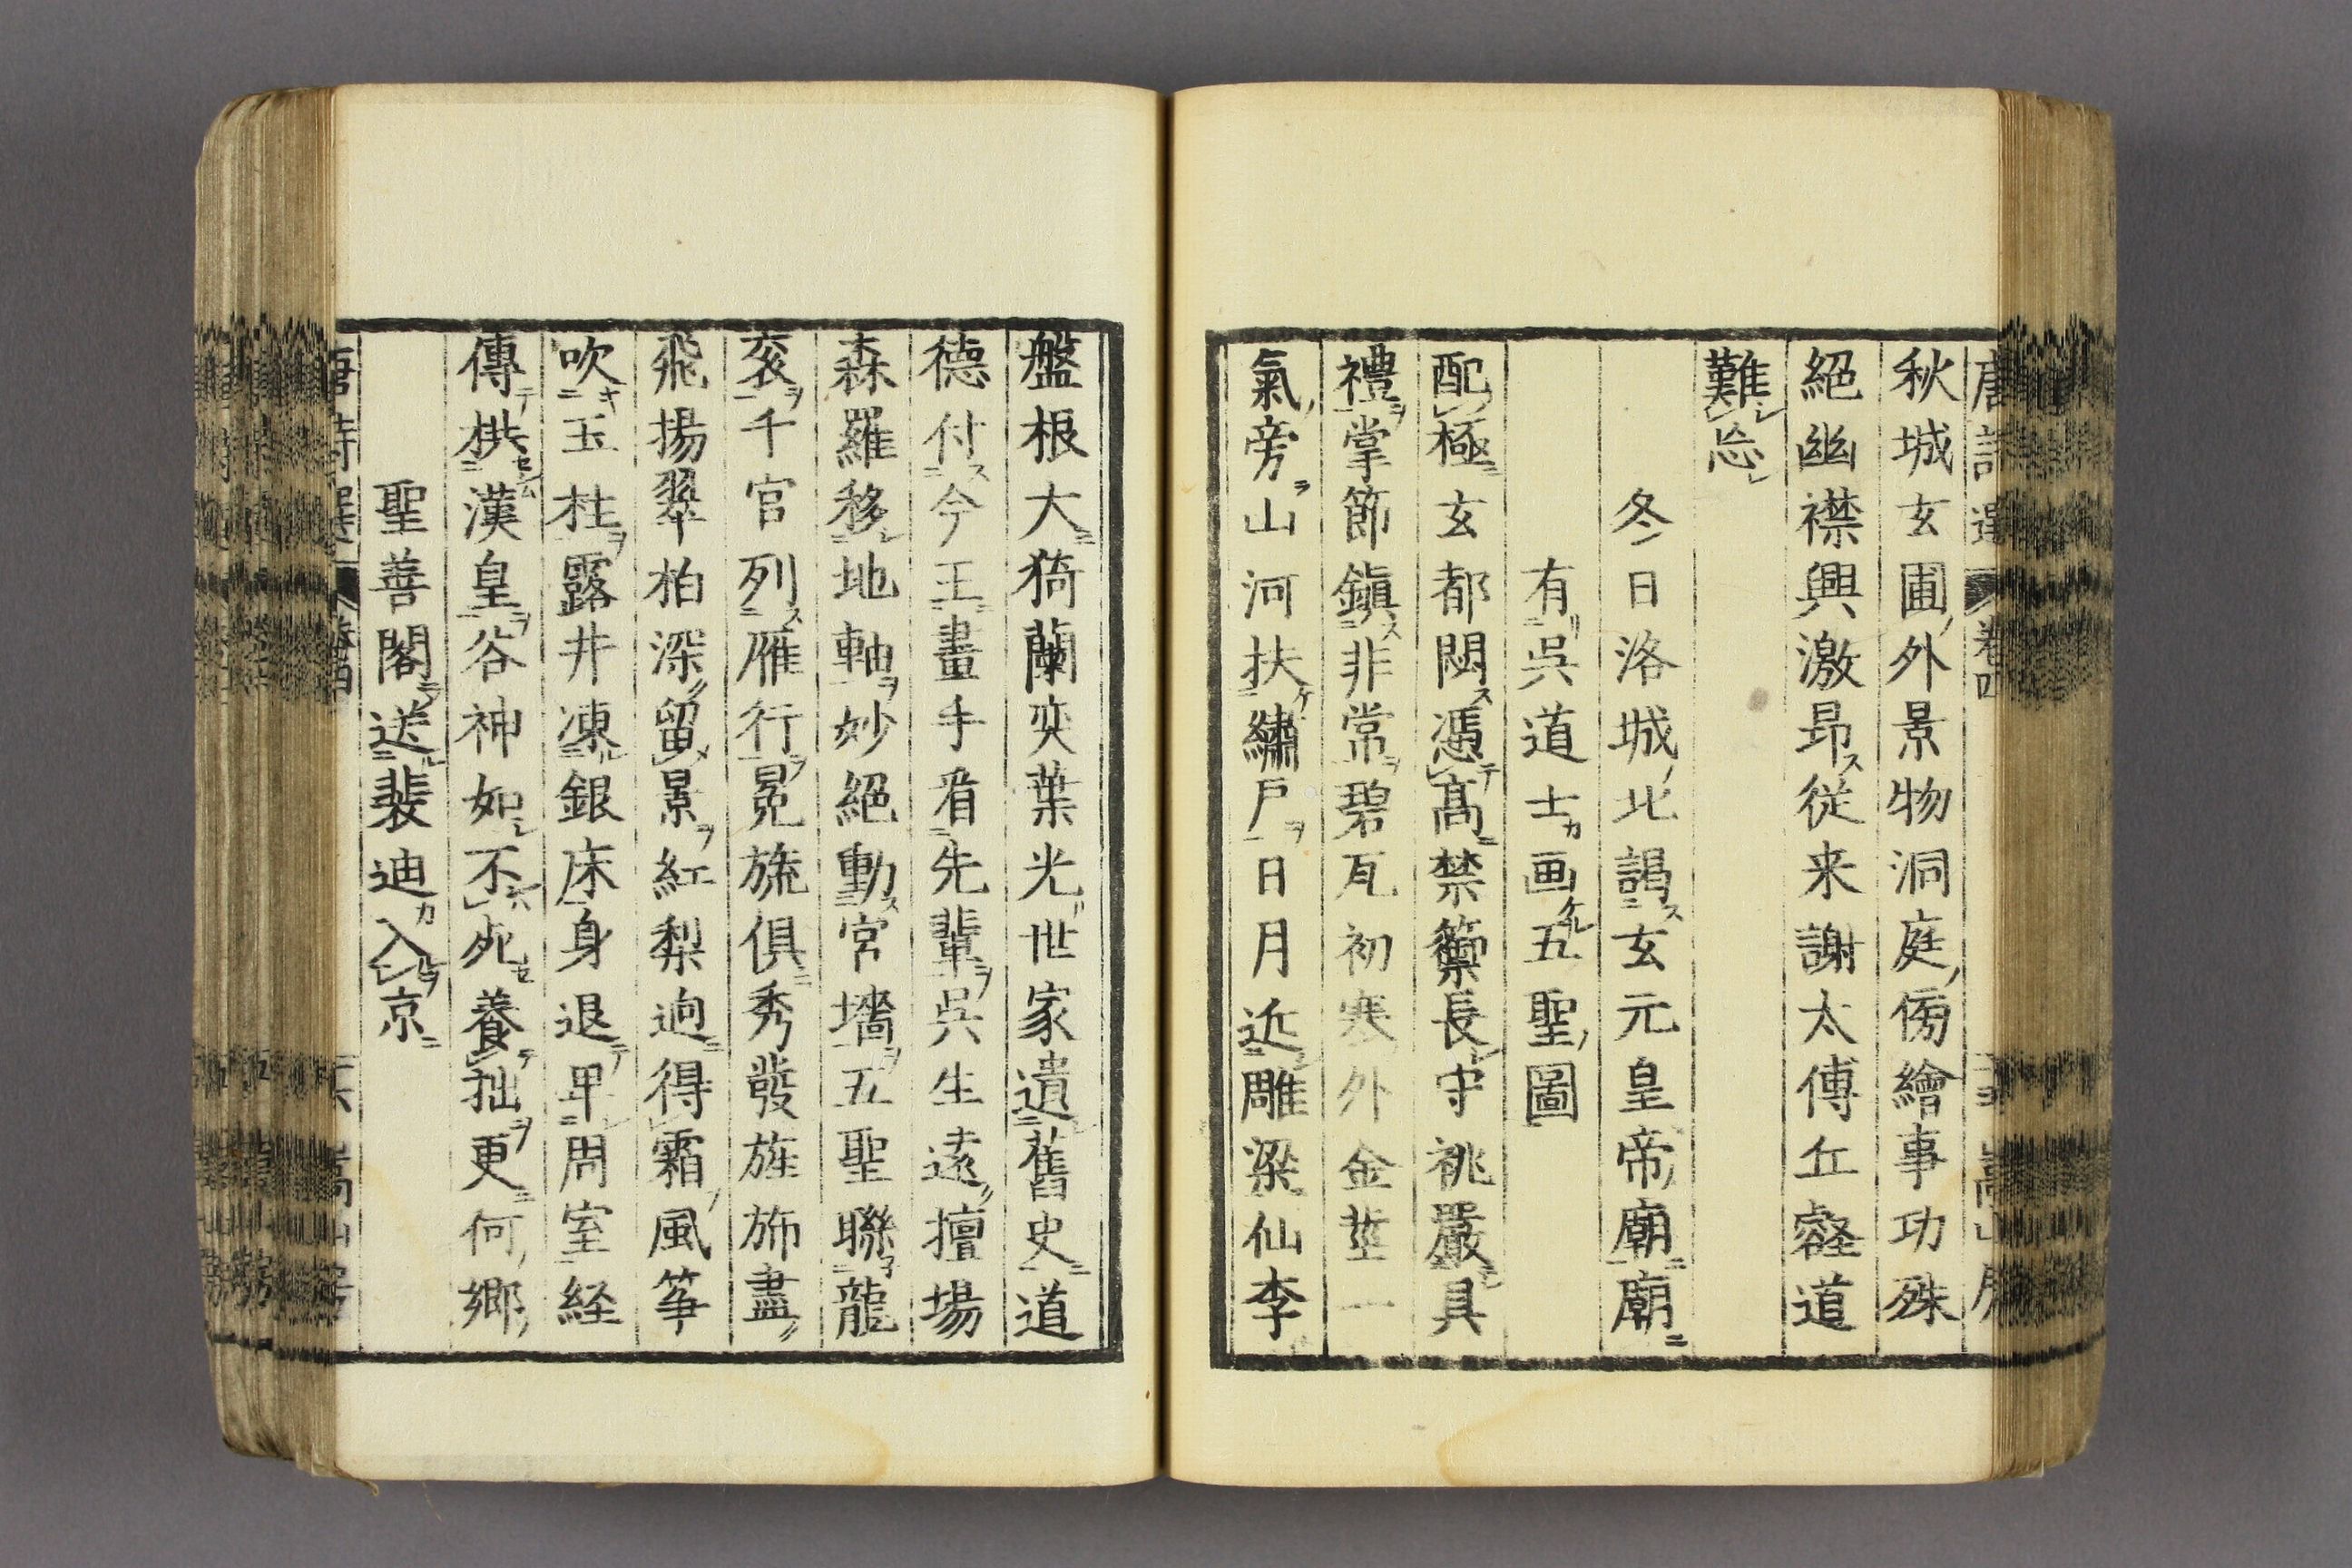 秋城玄圃外景物洞庭傍繪事功殊
絕幽襟興激昻從来謝太傅丘壑道
難忘
冬日洛城北謁玄元皇帝廟廟
有吳道士画五聖圖
配極玄都閟憑高禁籞長守祧嚴具
禮掌節鎮非常碧瓦初寒外金莖一
氣旁山河扶繡戶日月近雕梁仙李
盤根大猗蘭奕葉光世家遺舊史道
德付今王畫手看先輩吳生遠擅場
森羅移地軸妙絕動宮墻五聖聯龍
衮千官列雁行冕旒俱秀發旌斾盡
飛揚翠柏深留景紅梨迥得霜風筝
吹玉柱露井凍銀床身退卑周室経
傳拱漢皇谷神如不死養拙更何鄉
聖善閣送裴迪入京